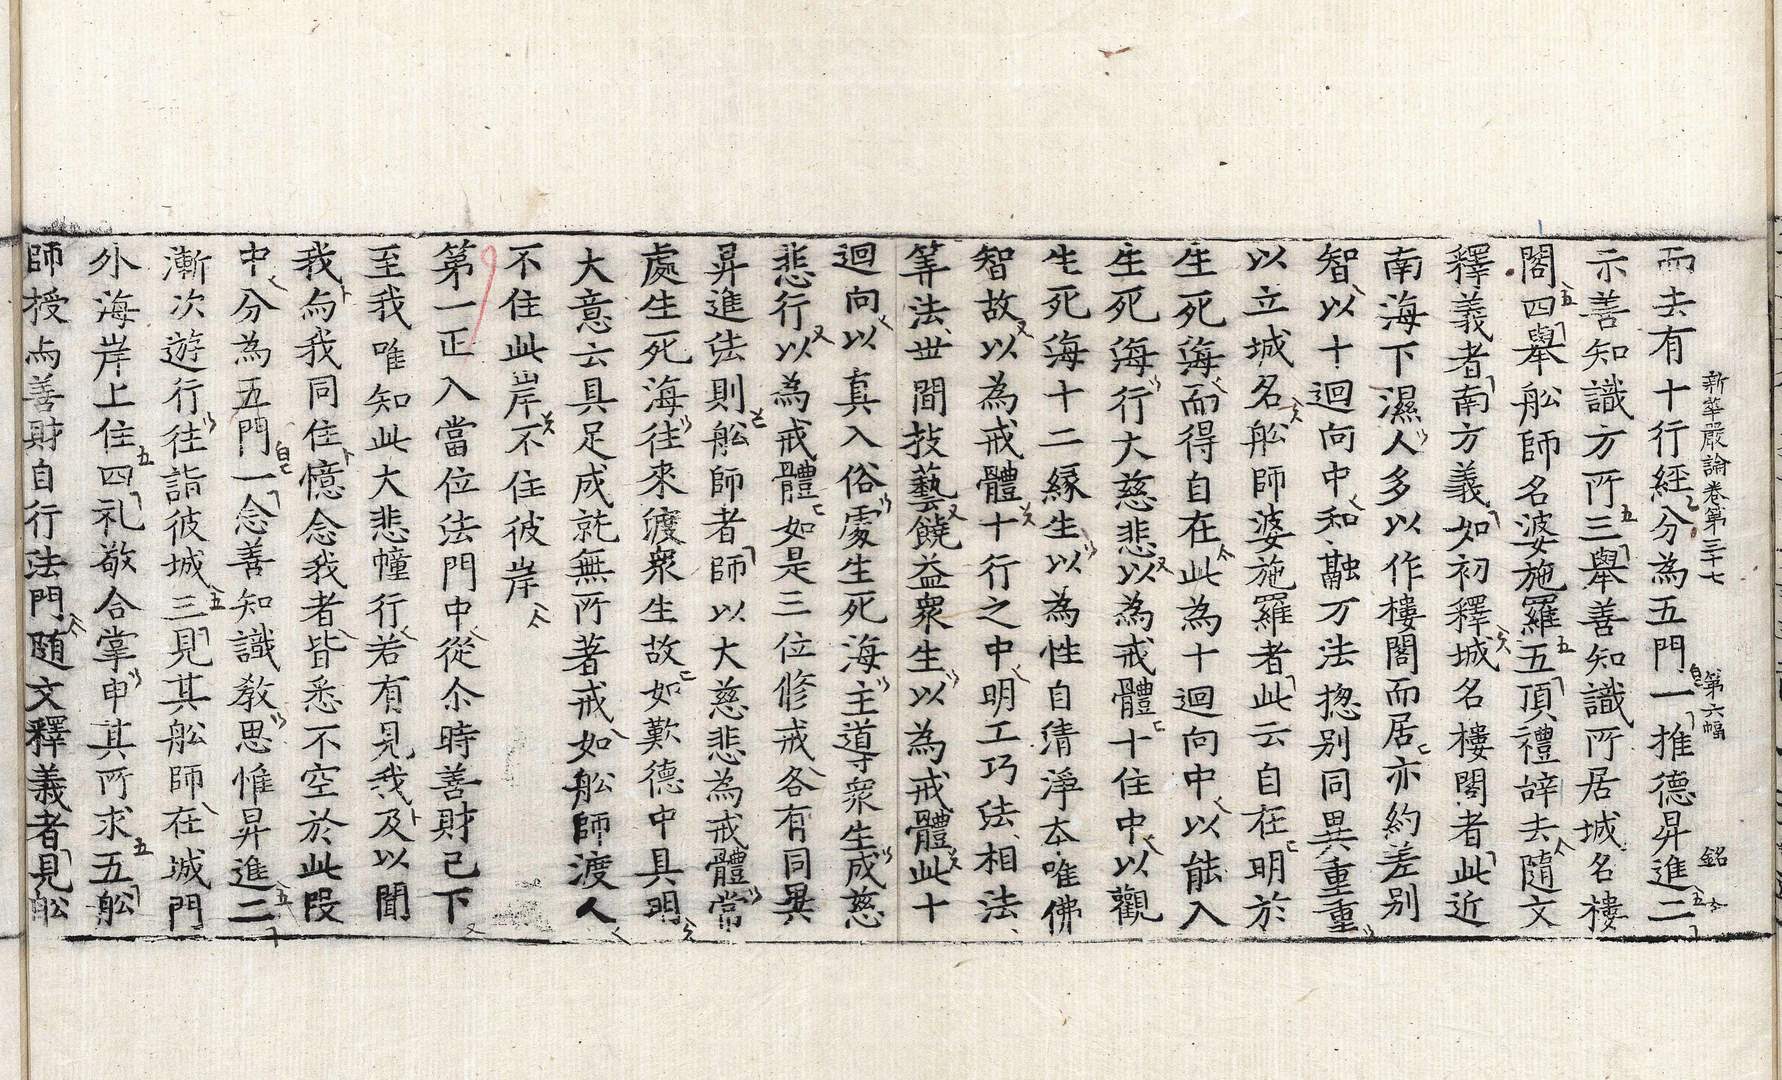 新華嚴論卷第三十七 第六幅 銘
而去有十行經分為五門一推德昇進二
示善知識方所三舉善知識所居城名樓
閣四舉舩師名婆施羅五頂禮辝去隨文
釋義者南方義如初釋城名樓閣者此近
南海下濕人多以作樓閣而居亦約差別
智以十迴向中和融万法揔別同異重重
以立城名舩師婆施羅者此云自在明於
生死海而得自在此為十迴向中以能入
生死海行大慈悲以為戒體十住中以觀
生死海十二緣生以為性自清淨本唯佛
智故以為戒體十行之中明工巧法相法
等法世間技藝饒益衆生以為戒體此十
迴向以真入俗處生死海主導衆生成慈
悲行以為戒體如是三位修戒各有同異
昇進法則舩師者師以大慈悲為戒體常
處生死海往來渡衆生故如歎德中具明
大意云具足成就無所著戒如舩師渡人
不住此岸不住彼岸
第一正入當位法門中從尒時善財已下
至我唯知此大悲幢行若有見我及以聞
我与我同住憶念我者皆悉不空於此段
中分為五門一念善知識教思惟昇進二
漸次遊行往詣彼城三見其舩師在城門
外海岸上住四礼敬合掌申其所求五舩
師授与善財自行法門随文釋義者見舩